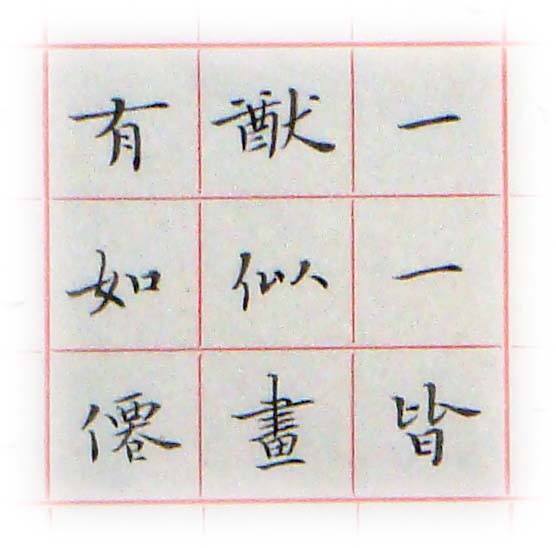 一一皆
猷似畫
有如僊